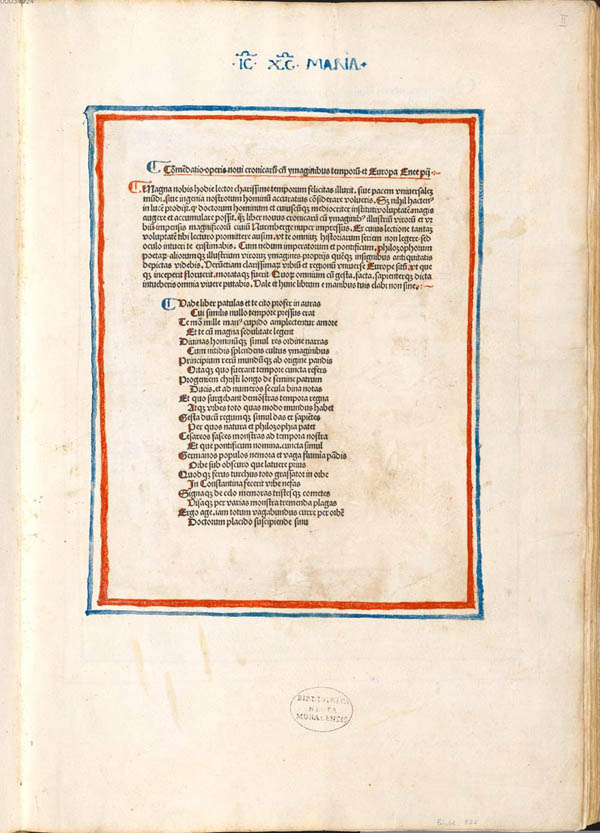 00034024
II
·IC̄· XC̄· MARIA+
Cōmēdatio operis noui cronicarū cū ymaginibus temporū et Europa Enee pij
Magna nobis hodie lector charissime temporum felicitas illuxit. siue pacem vniuersalez
mūdi. siue ingenia nostrorum hominū accuratius cōsiderare volueris. Sz nihil hactenꝰ
in lucē prodijt. qꝫ doctorum hominum et cuiuscūqꝫ mediocriter instituti voluptatē magis
augere et accumulare possit. qꝫ liber nouus cronicarū cū ymaginibꝰ illustriū virorū et vr
biū impensis magnificorū ciuiū Nurembergē nuper impressus. Ex cuius lectione tantaz
voluptatē tibi lectori promittere ausim. vt te omniuz historiarum seriem non legere. sed
oculo intueri te existimabis. Cum nedum imperatorum et pontificum. philosophorum
poetaꝝ aliorumqꝫ illustrium viroruꝫ ymagines proprijs quēqꝫ insignibus antiquitatis
depictas videbis. Verūetiam clarissimaꝝ vrbiū et regionū vniuerse Europe sitū. vt que
qꝫ inceperit floruerit. morataqꝫ fuerit Quoꝝ omnium cū gesta. facta. sapienterqꝫ dicta
intueberis omnia viuere putabis. Vale et hunc librum e manibus tuis elabi non sine.
Vade liber patulas et te cito profer in auras
Cui similis nullo tempore pressus erat
Te mō mille manꝰ cupido amplectentur amore
Et te cū magna sedulitate legent
Diuinas hominūqꝫ simul res ordine narras
Cum nitidis splendens cultus ymaginibus
Principium rerū mundūqꝫ ab origine pandis
Quaqꝫ quo fuerant tempore cuncta refers
Progeniem christi longo de semine patrum
Ducis. et ad numeros secula bina notas
Et quo surgebant demōstras tempora regna
Atqꝫ vrbes toto quas modo mundus habet
Gesta ducū regumqꝫ simul das et sapiētes
Per quos natura et philosophia patet
Cesareos fasces monstras ad tempora nostra
Et que pontificum nomina. cuncta simul
Germanos populos nemora et vaga flumīa pādis
Orbe sub obscuro que latuere prius
Quodqꝫ ferus turchus toto grassator in orbe
In Constantina fecerit vrbe nefas
Signaqꝫ de celo memoras tristesqꝫ cometes
Visaqꝫ per varias monstra tremenda plagas
Ergo age. iam totum vagabundus curre per orbē
Doctorum placido suscipiende sinu
BIBLIOTHECA
REGIA
MONACENSIS